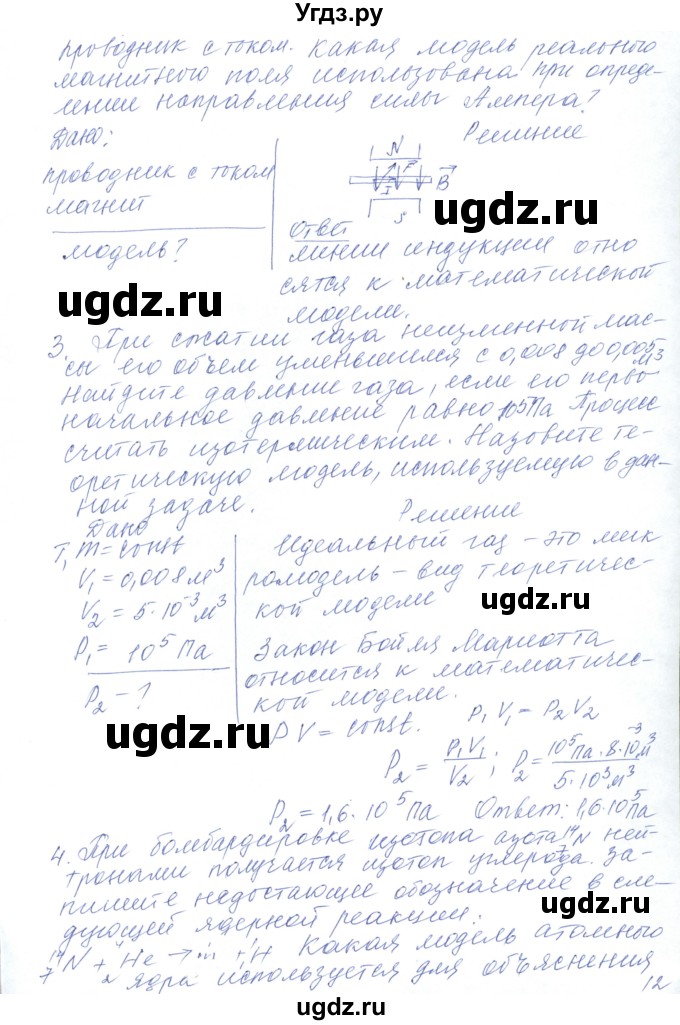 Угдз.ру
проводник с током. Какая модель реального
магнитного поля использована при опреде-
лении направления силы Ампера?
Дано:
Решение
проводник с током
магнит
модель?
N
F
I
B
S
ugdz.ru
Ответ
линии индукции отно
сятся к математической
модели.
ugdz.ru
3. При сжатии газа неизменной мас-
сы его объем уменьшился с 0,008 до 0,005 м³
Найдите давление газа, если его перво
начальное давление равно 10⁵Па Процесс
считать изотермическим. Назовите те-
оретическую модель, используемую в дан-
ной задаче.
Дано
Решение
T, m = const
V₁ = 0,008 м³
V₂ = 5·10⁻³ м³
P₁ = 10⁵ Па
P₂ - ?
Идеальный газ – это мик
ромодель – вид теоретичес-
кой модели
ugdz.ru
Закон Бойля Мариотта
относится к математичес-
кой модели.
ugdz.ru
PV = const. P₁V₁ = P₂V₂
P₂ = P₁V₁/V₂; P₂ = 10⁵Па·8·10⁻³м³/5·10³м³
P₂ = 1,6·10⁵Па Ответ: 1,6·10⁵Па
4. При бомбардировке изотопа азота ¹⁴₇N ней-
тронами получается изотоп углерода. За-
пишите недостающее обозначение в сле-
дующей ядерной реакции.
ugdz.ru
ugdz.ru
¹⁴₇N + ⁴₂He → m + ¹₁H Какая модель атомного
ядра используется для объяснения
12
ugdz.ru